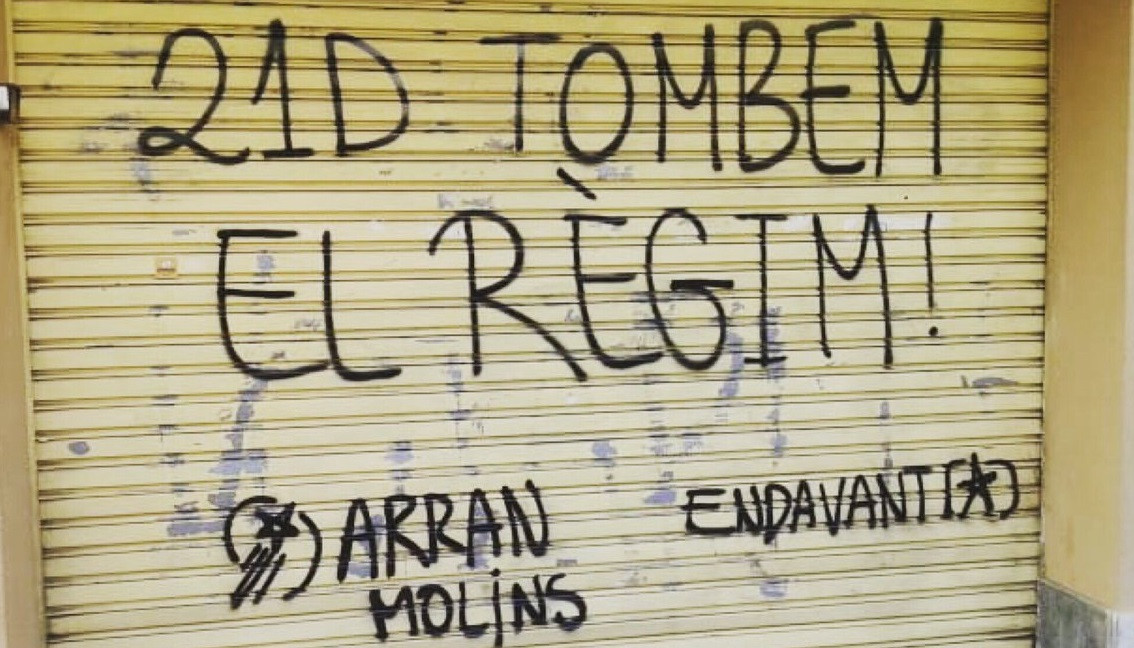 21D TOMBEM
EL RÈGIM!
ARRAN
MOLiNS
ENDAVANT(★)